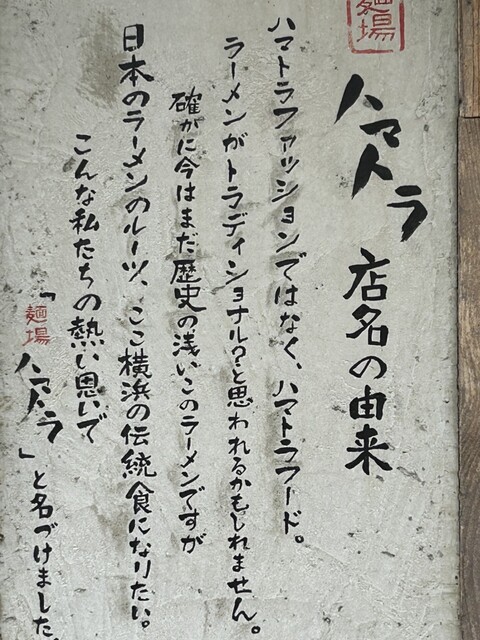 麺場
ハマトラ 店名の由来
ハマトラファッションではなく、ハマトラフード。
ラーメンがトラディショナル?と思われるかもしれません。
確かに今はまだ歴史の浅いこのラーメンですが
日本のラーメンのルーツ、ここ横浜の伝統食になりたい。
こんな私たちの熱い思いで
「麺場ハマトラ」と名づけました。